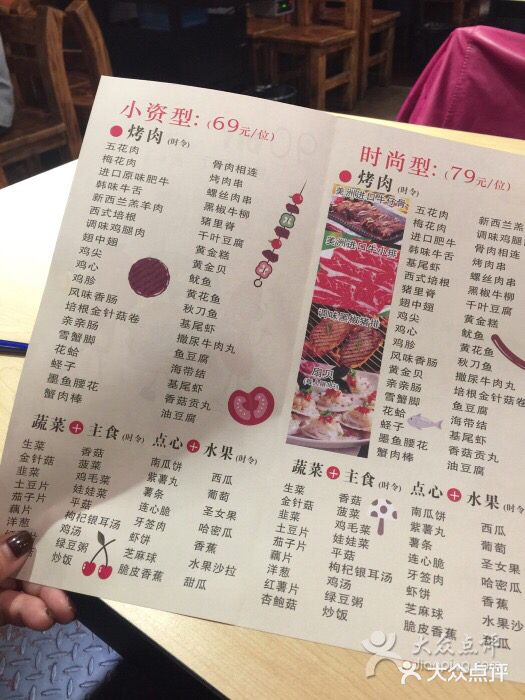 小资型:(69元/位)
烤肉(时令)
五花肉
梅花肉
进口原味肥牛
韩味牛舌
新西兰羔羊肉
西式培根
调味鸡腿肉
翅中翅
鸡尖
鸡心
鸡胗
风味香肠
培根金针菇卷
亲亲肠
雪蟹脚
花蛤
蛏子
墨鱼腰花
蟹肉棒
骨肉相连
烤肉串
螺丝肉串
黑椒牛柳
猪里脊
千叶豆腐
黄金糕
黄金贝
鱿鱼
黄花鱼
秋刀鱼
基尾虾
撒尿牛肉丸
鱼豆腐
海带结
基尾虾
香菇贡丸
油豆腐
蔬菜+主食(时令)
生菜
金针菇
韭菜
土豆片
茄子片
藕片
洋葱
香菇
菠菜
鸡毛菜
娃娃菜
平菇
枸杞银耳汤
鸡汤
绿豆粥
炒饭
点心+水果(时令)
南瓜饼
紫薯丸
薯条
连心脆
牙签肉
虾饼
芝麻球
脆皮香蕉
西瓜
葡萄
圣女果
哈密瓜
香蕉
水果沙拉
甜瓜
时尚型:(79元/位)
烤肉(时令)
美洲进口牛仔骨
美洲进口牛小排
调味黑椒猪排
扇贝
五花肉
梅花肉
进口肥牛
韩味牛舌
基尾虾
西式培根
猪里脊
翅中翅
鸡尖
鸡心
鸡胗
风味香肠
黄金贝
亲亲肠
雪蟹脚
花蛤
蛏子
墨鱼腰花
蟹肉棒
新西兰羔羊肉
调味鸡腿肉
骨肉相连
烤肉串
螺丝肉串
黑椒牛柳
千叶豆腐
黄金糕
鱿鱼
黄花鱼
秋刀鱼
撒尿牛肉丸
鱼豆腐
海带结
基尾虾
香菇贡丸
油豆腐
蔬菜+主食(时令)
生菜
金针菇
韭菜
土豆片
茄子片
藕片
洋葱
红薯片
杏鲍菇
香菇
菠菜
鸡毛菜
娃娃菜
平菇
枸杞银耳汤
鸡汤
绿豆粥
炒饭
点心+水果(时令)
南瓜饼
紫薯丸
薯条
连心脆
牙签肉
虾饼
芝麻球
脆皮香蕉
西瓜
葡萄
圣女果
哈密瓜
香蕉
水果沙
甜瓜
大众点评
dianping.com
大众点评